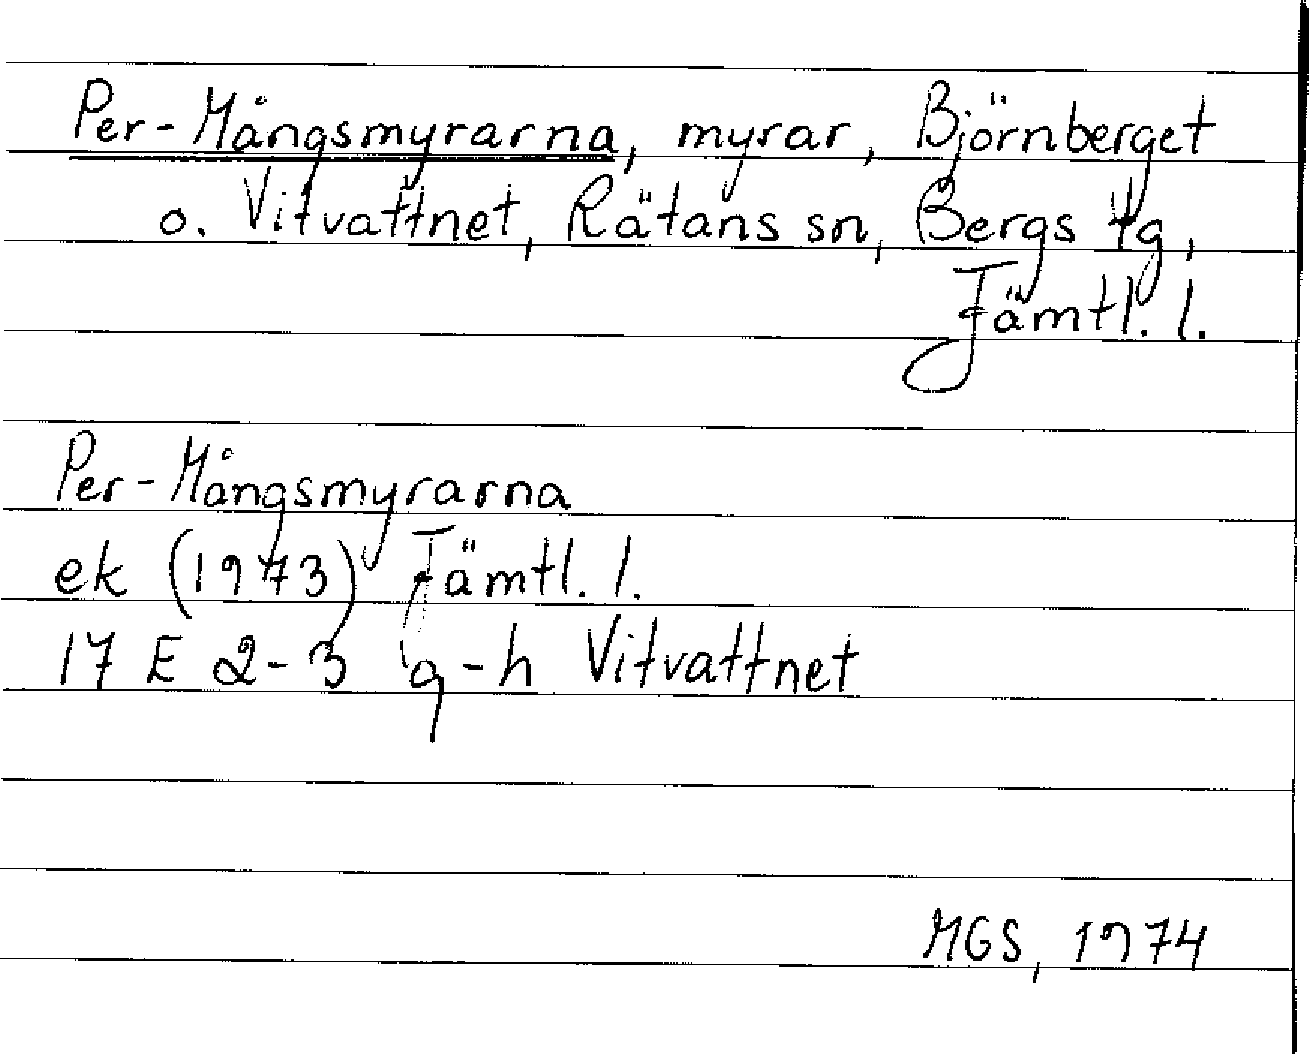 Per-Mångsmyrarna, myrar, Björnberget
o. Vitvattnet, Rätans sn, Bergs tg,
Jämtl. l.
Per-Mångsmyrarna
ek (1973) Jämtl. l.
17 E 2-3 g-h Vitvattnet
MGS, 1974